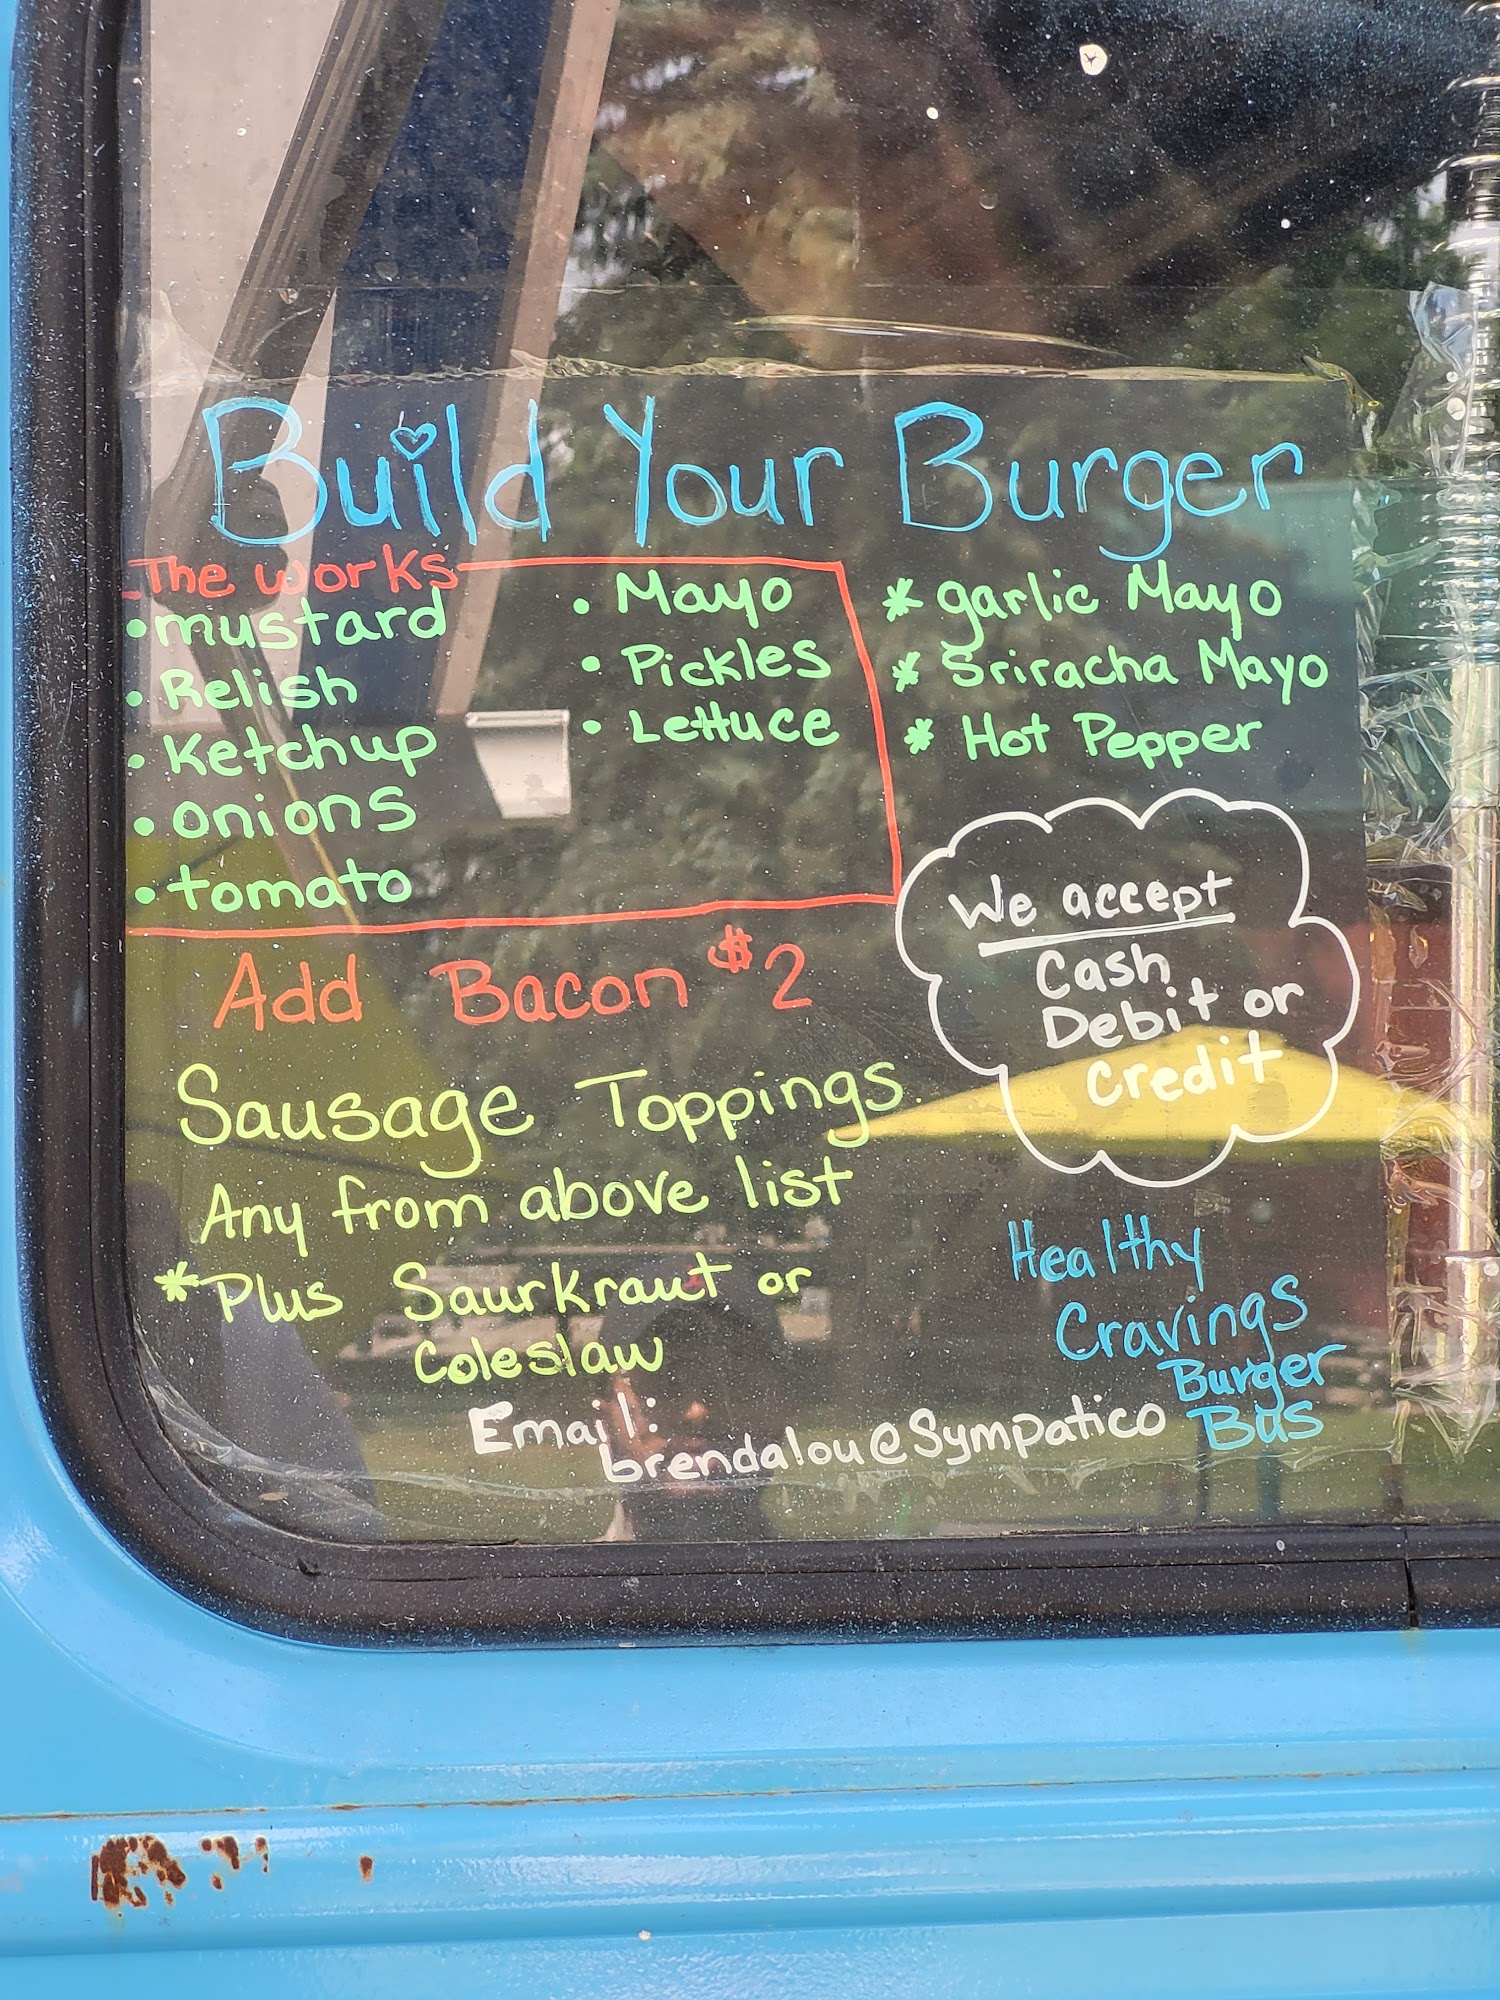 Build Your Burger
The works
• mustard
• Relish
• Ketchup
• onions
• tomato
• Mayo
• Pickles
• Lettuce
* garlic Mayo
* Sriracha Mayo
* Hot Pepper
Add Bacon $2
We accept
Cash
Debit or
Credit
Sausage Toppings
Any from above list
*Plus Saurkraut or
Coleslaw
Email:
brendalou@Sympatico
Healthy
Cravings
Burger
Bus